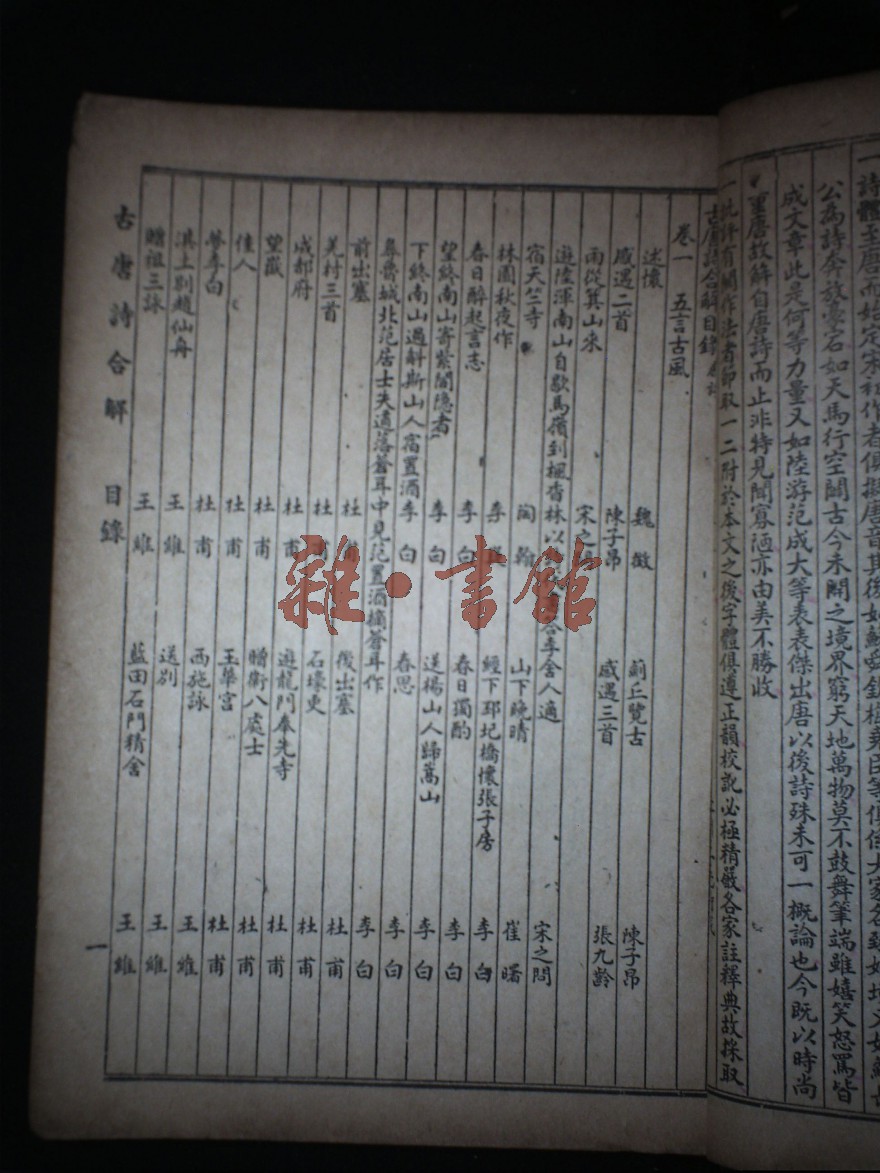 一詩體至唐而始定宋初作者俱擬唐音其後如蘇舜欽梅堯臣等俱
公為詩奔放臺石如天馬行空闢古今未闢之境界窮天地萬物莫不鼓舞筆端雖嬉笑怒罵皆
成文章此是何等力量又如陸游范成大等表表傑出唐以後詩殊未可一概論也今既以時尚
重唐故解自唐詩而止非特見聞寡陋亦由美不勝收
一批評有關作法者節取一二附於本文之後字體俱遵正韻校訛必極精嚴各家註釋典故採取
古唐詩合解目錄
卷一 五言古風
述懷 魏徵 薊丘覽古 陳子昂
感遇二首 陳子昂 感遇三首 張九齡
雨從箕山來 宋之問
遊陸渾南山自歇馬嶺到楓香林以詩代書答李舍人適 宋之問
宿天竺寺 陶翰 山下晚晴 崔曙
林園秋夜作 李 經下邳圯橋懷張子房 李白
春日醉起言志 李白 春日獨酌 李白
望終南山寄紫閣隱者 李白 送楊山人歸嵩山 李白
下終南山過斛斯山人宿置酒 李白 春思 李白
尋魯城北范居士失道落蒼耳中見范置酒摘蒼耳作 李白
前出塞 杜甫 後出塞 杜甫
羌村三首 杜甫 石壕吏 杜甫
成都府 杜甫 遊龍門奉先寺 杜甫
望嶽 杜甫 贈衛八處士 杜甫
佳人 杜甫 玉華宮 杜甫
夢李白 杜甫 西施詠 王維
淇上別趙仙舟 王維 送別 王維
贈祖三詠 王維 藍田石門精舍 王維
古唐詩合解 目錄 一
雜·書館